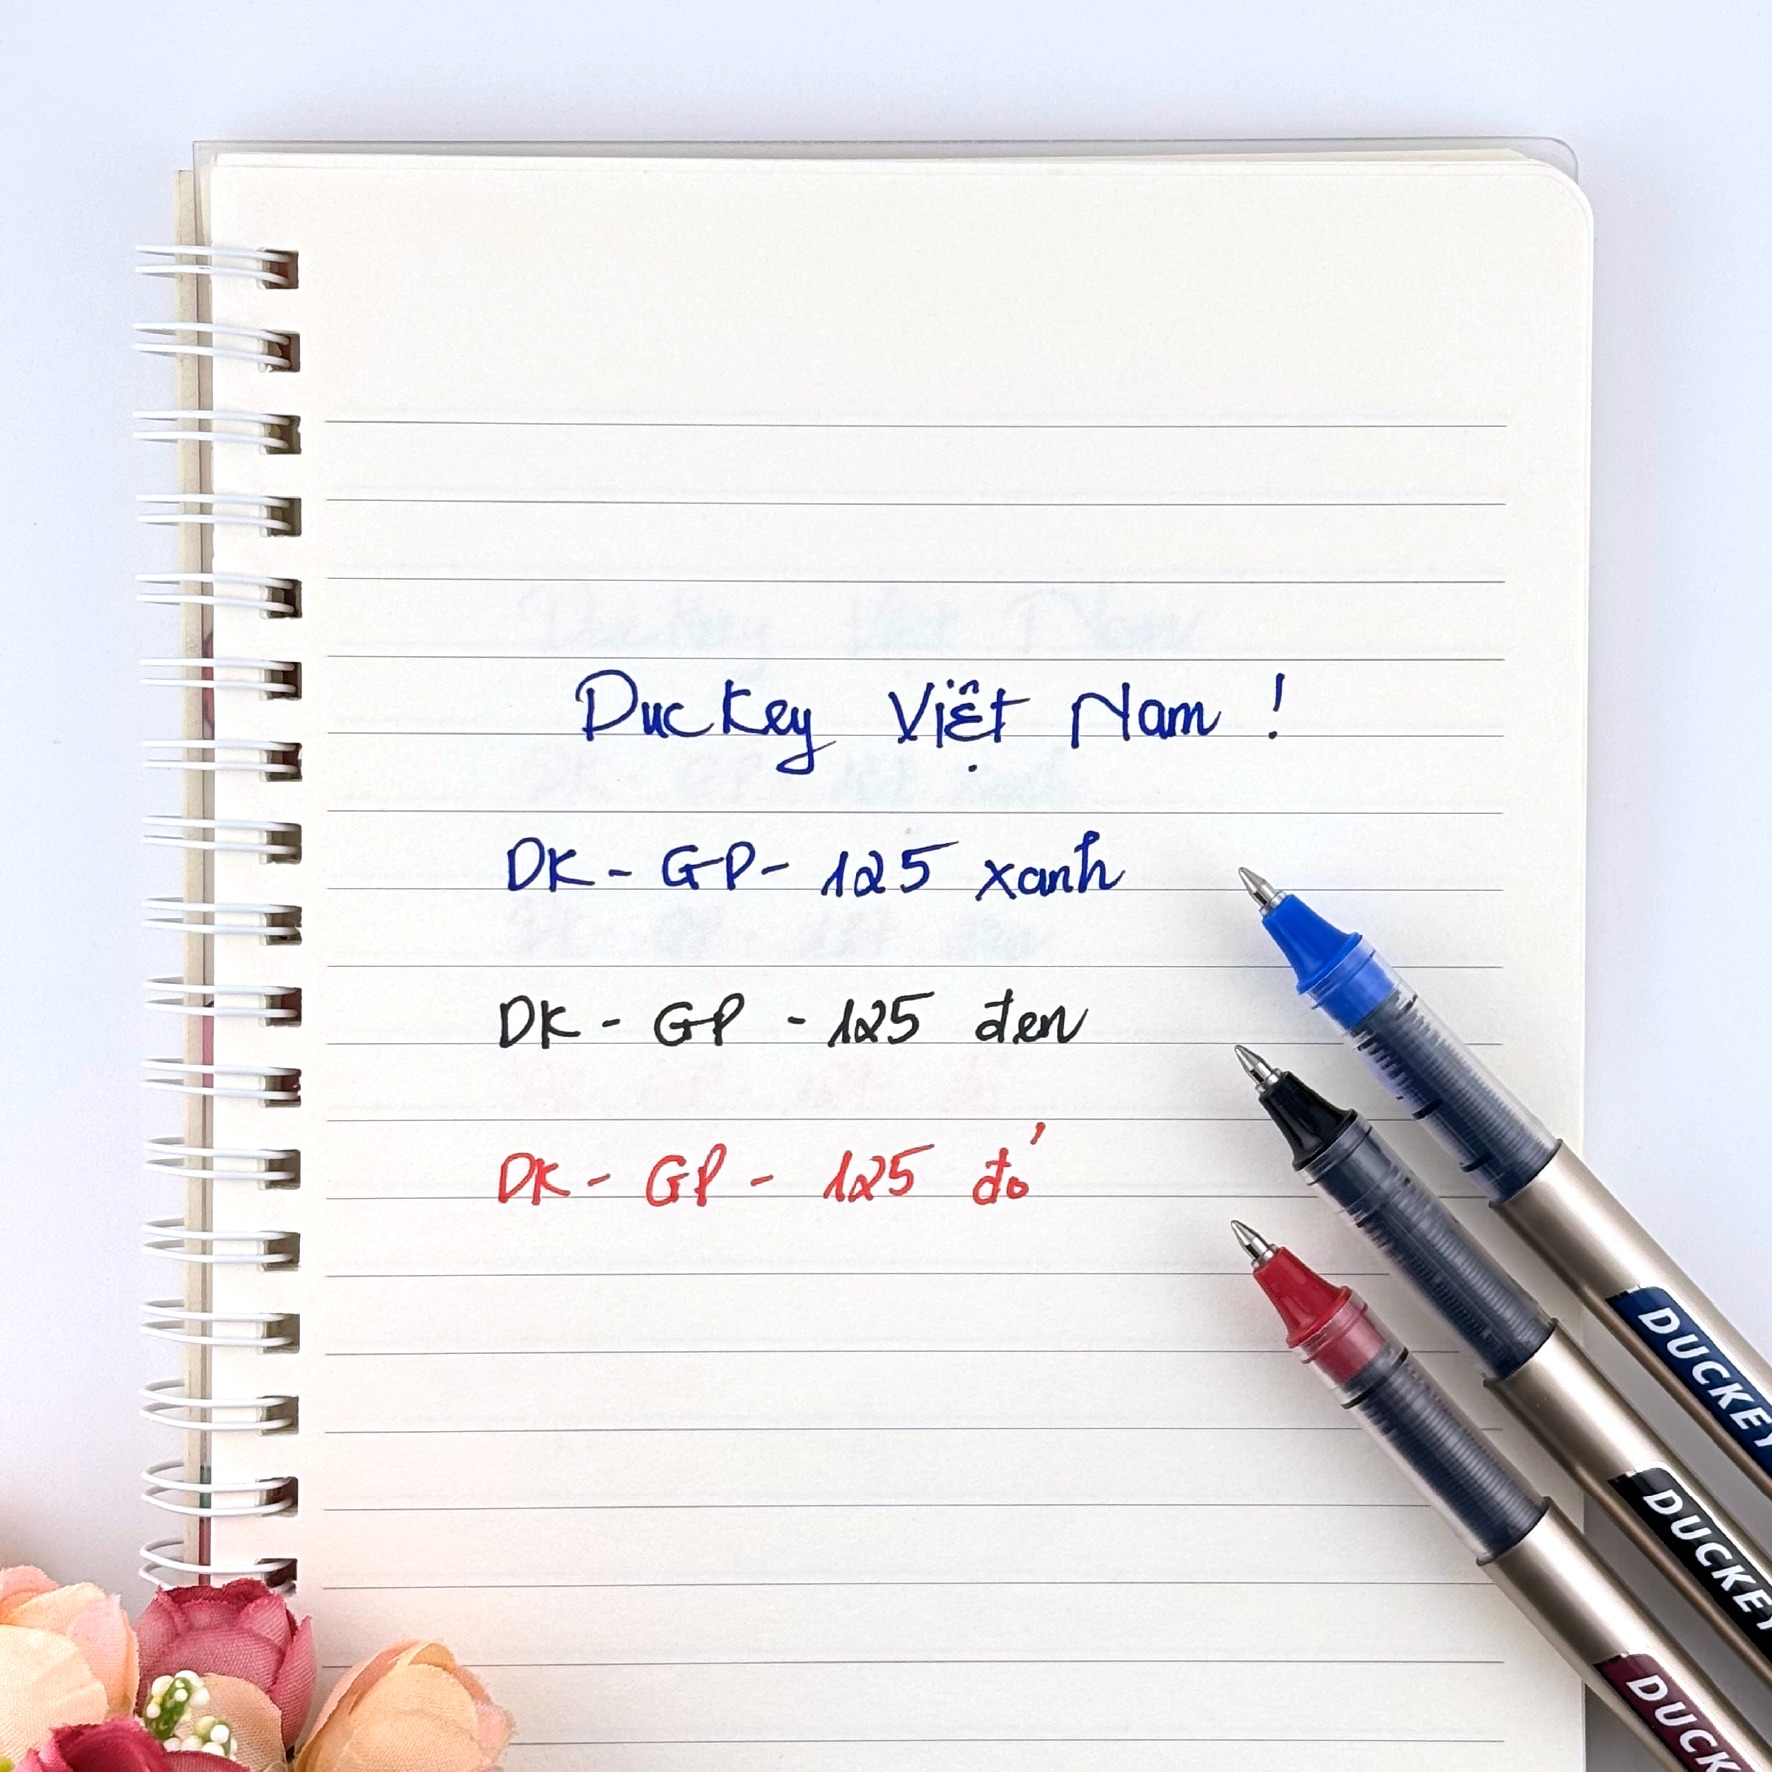 Duckey Việt Nam !
DK - GP - 125 xanh
DK - GP - 125 đen
DK - GP - 125 đỏ
DUCKEY
DUCKEY
DUCK